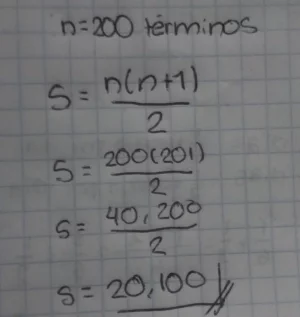 n=200 términos
S = n(n+1)
2
S = 200(201)
2
S = 40,200
2
S = 20,100